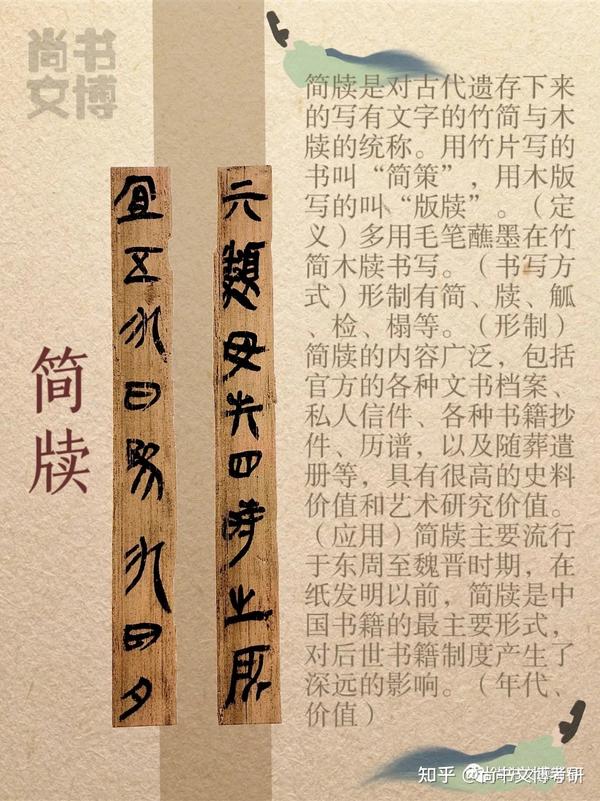 尚书
文博
简牍是对古代遗存下来
的写有文字的竹简与木
牍的统称。用竹片写的
书叫“简策”，用木版
写的叫“版牍”。（定
义）多用毛笔蘸墨在竹
简木牍书写。（书写方
式）形制有简、牍、觚
、检、楬等。（形制）
简牍的内容广泛，包括
官方的各种文书档案、
私人信件、各种书籍抄
件、历谱，以及随葬遣
册等，具有很高的史料
价值和艺术研究价值。
（应用）简牍主要流行
于东周至魏晋时期，在
纸发明以前，简牍是中
国书籍的最主要形式，
对后世书籍制度产生了
深远的影响。（年代、
价值）
简牍
知乎 @尚书文博考研